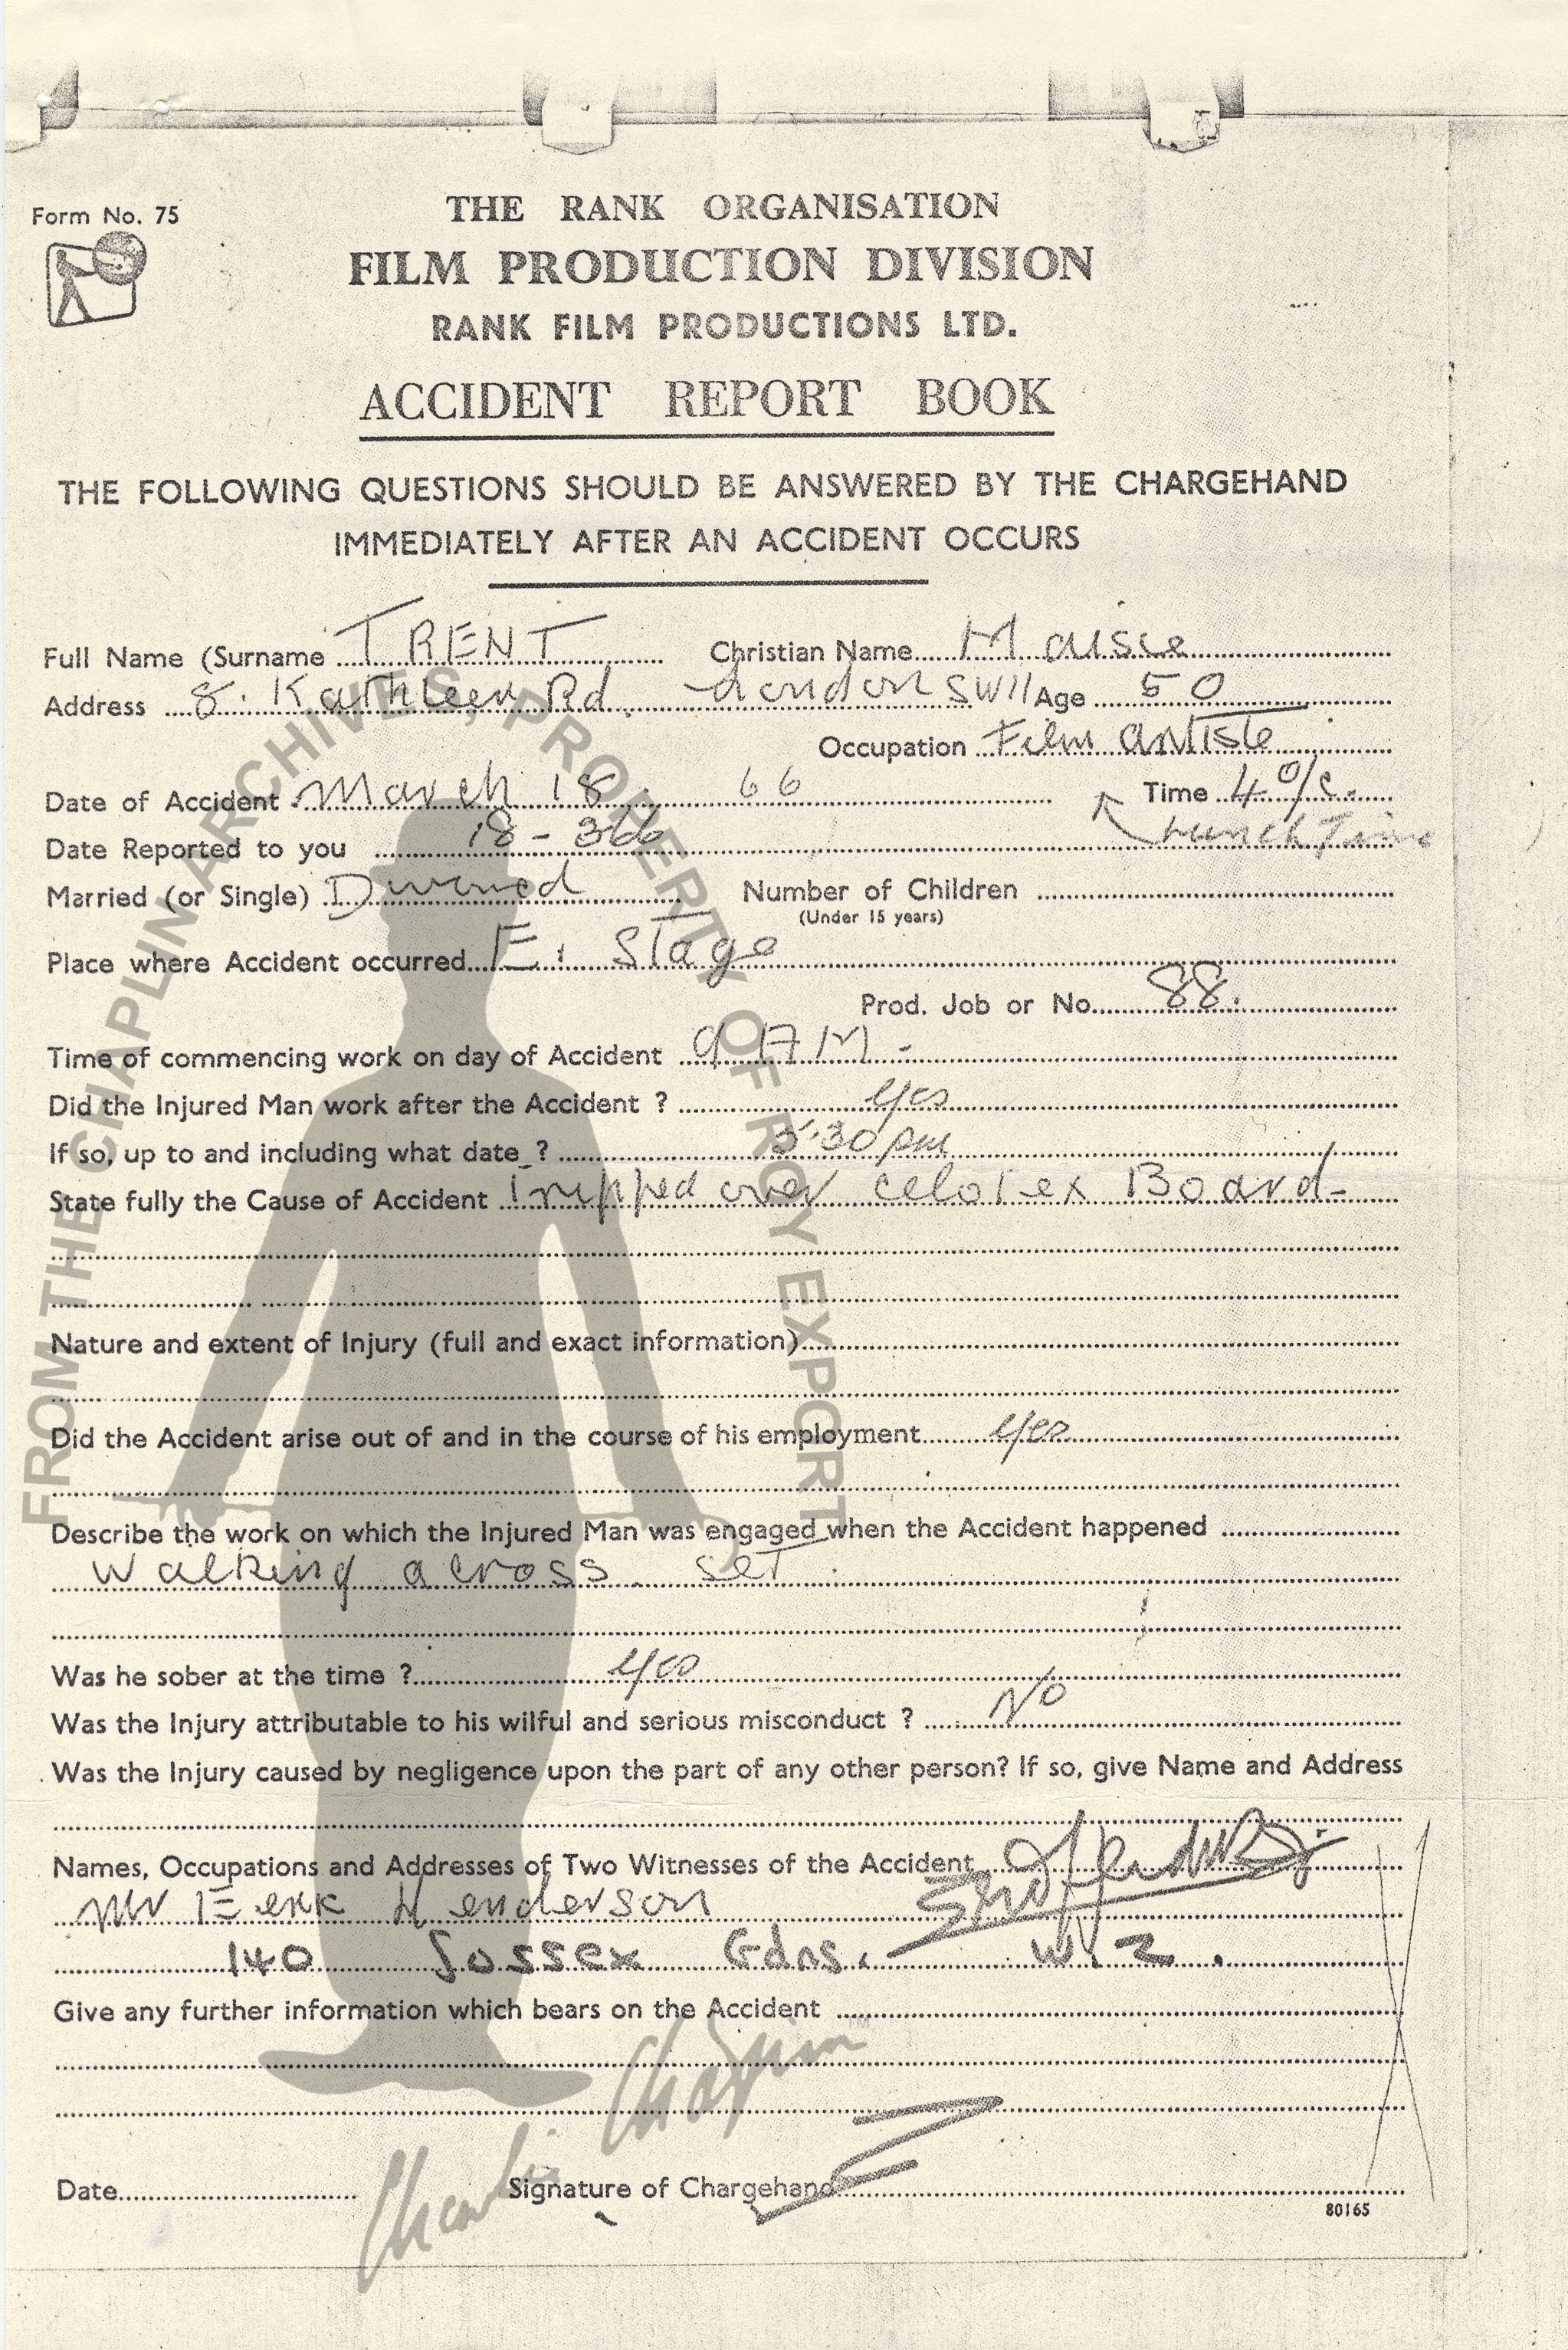 Form No. 75
THE RANK ORGANISATION
FILM PRODUCTION DIVISION
RANK FILM PRODUCTIONS LTD.
ACCIDENT REPORT BOOK
THE FOLLOWING QUESTIONS SHOULD BE ANSWERED BY THE CHARGEHAND
IMMEDIATELY AFTER AN ACCIDENT OCCURS
Full Name (Surname TRENT Christian Name Maisie
Address 8. Kathleen Rd. London SW11 Age 50
Occupation Film Artiste
Date of Accident March 18. 66 Time 4 o/c.
Lunch Time
Date Reported to you 18-366
Married (or Single) Divorced Number of Children
(Under 15 years)
Place where Accident occurred E. Stage
Prod. Job or No. 88.
Time of commencing work on day of Accident
Did the Injured Man work after the Accident ? yes
If so, up to and including what date ? 5.30 pm
State fully the Cause of Accident Tripped over celotex Board-
Nature and extent of Injury (full and exact information)
Did the Accident arise out of and in the course of his employment yes
Describe the work on which the Injured Man was engaged when the Accident happened
Walking across set.
Was he sober at the time ? yes
Was the Injury attributable to his wilful and serious misconduct ? No
Was the Injury caused by negligence upon the part of any other person? If so, give Name and Address
Names, Occupations and Addresses of Two Witnesses of the Accident
Mr Henderson
140 Sossex Gdns. W. 2.
Give any further information which bears on the Accident
Date Signature of Chargehand
80165
FROM THE CHAPLIN ARCHIVES, PROPERTY OF ROY EXPORT
Charlie Chaplin TM